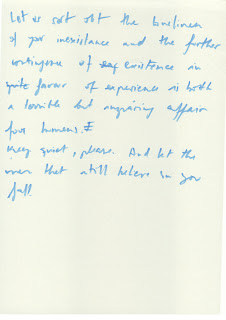 Let us sort out the loneliness
of your inexistance and the further
contingence of existence in
quite favour of experience is both
a horrible but inquiring affair
for humans.
very quiet, please. And let the
men that still believe in you
fall